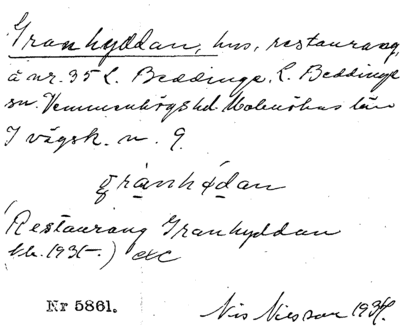 Granhyddan, hus, restaurang,
å nr. 35 L. Beddinge, L. Beddinge
sn. Vemmenhögs hd. Malmöhus län
I vägsk. n. 9
granhydan
Restaurang Granhyddan
etc
Nr 5861.
Nis Nilsson 1935.